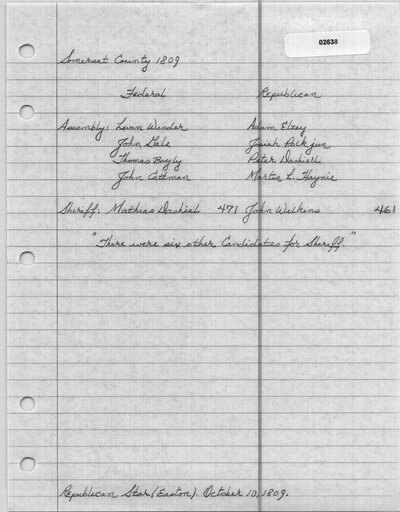 02638
Somerset County 1809
Federal Republican
Assembly: Levin Winder Adam Elzey
John Gale Josiah Polk jun
Thomas Bayly Peter Dashiell
John Cottman Martin L. Haynie
Sheriff: Mathias Dashiel 471 John Wilkins 461
"There were six other Candidates for Sheriff."
Republican Star (Easton). October 10, 1809.